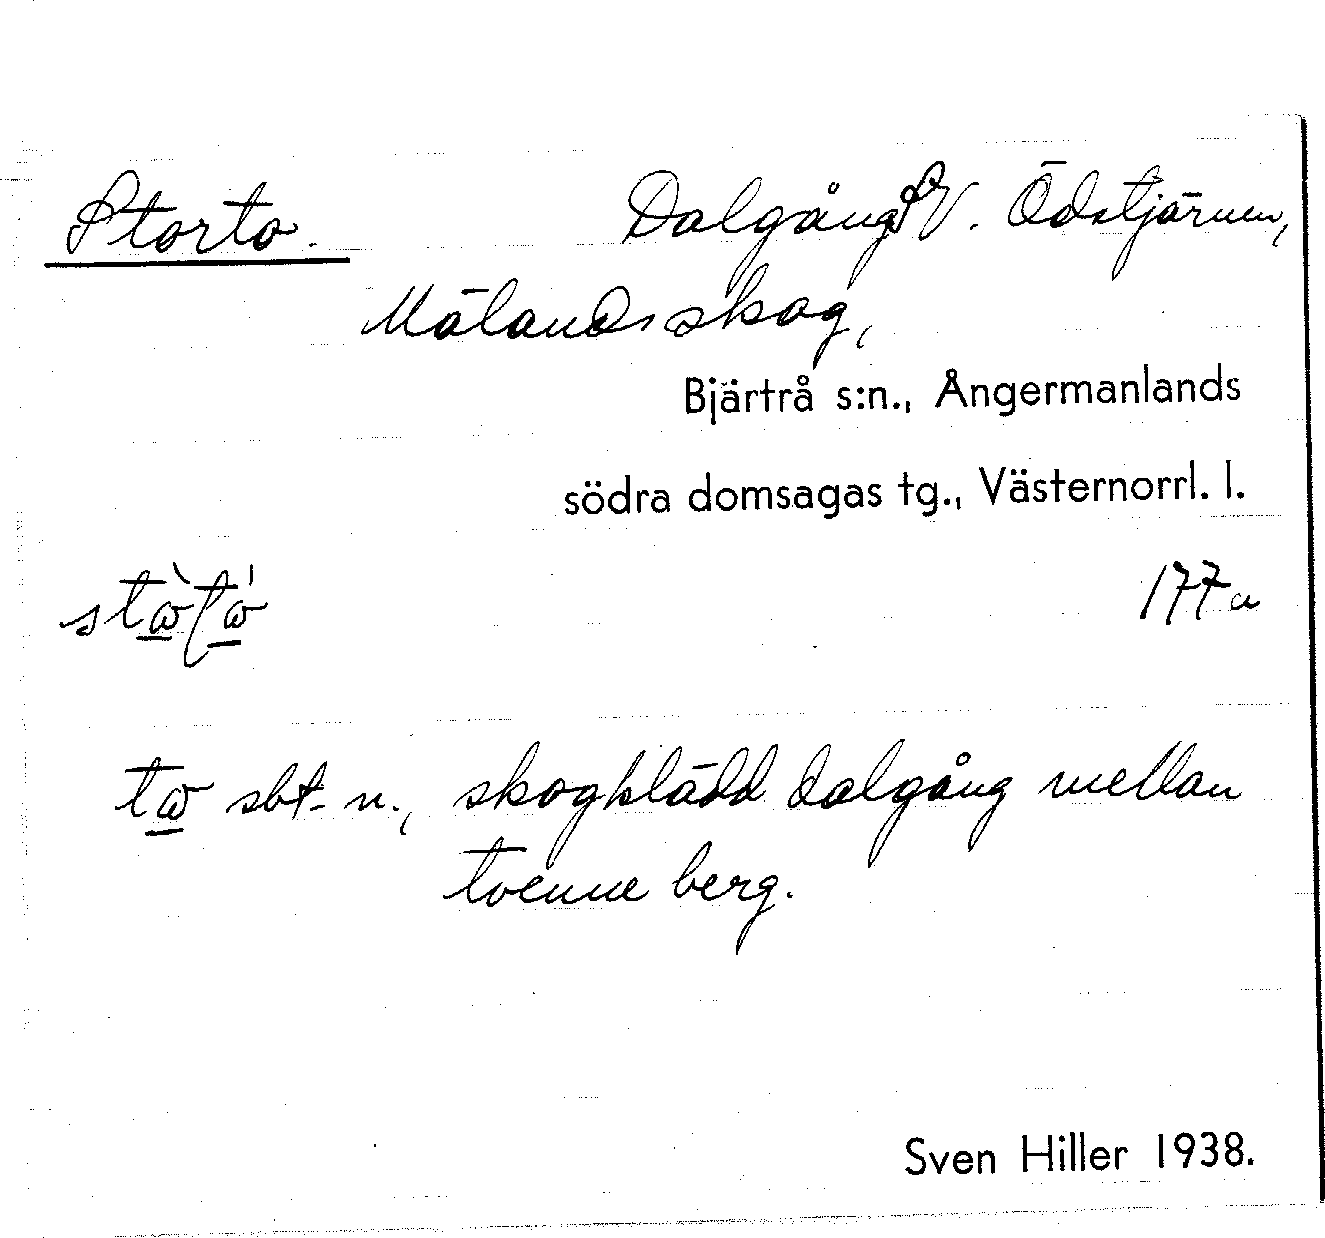 Storto. Dalgång SV. Ödstjärnen,
Mälandsskog,
Bjärtrå s:n., Ångermanlands
södra domsagas tg., Västernorrl. l.
177 a
sbt. n., skogklädd dalgång mellan
tvenne berg.
Sven Hiller 1938.